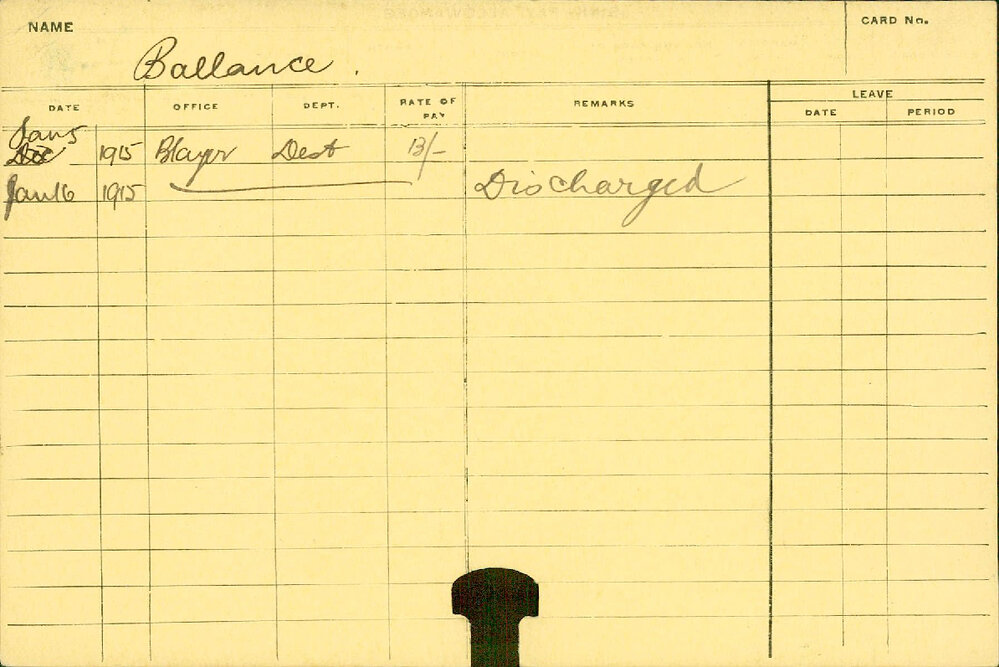 NAME
CARD No.
Ballance.
DATE OFFICE DEPT. RATE OF PAY REMARKS LEAVE
DATE PERIOD
Jan 5
Dec 1915 Blayer Dest 13/-
Jan 16 1915 Discharged